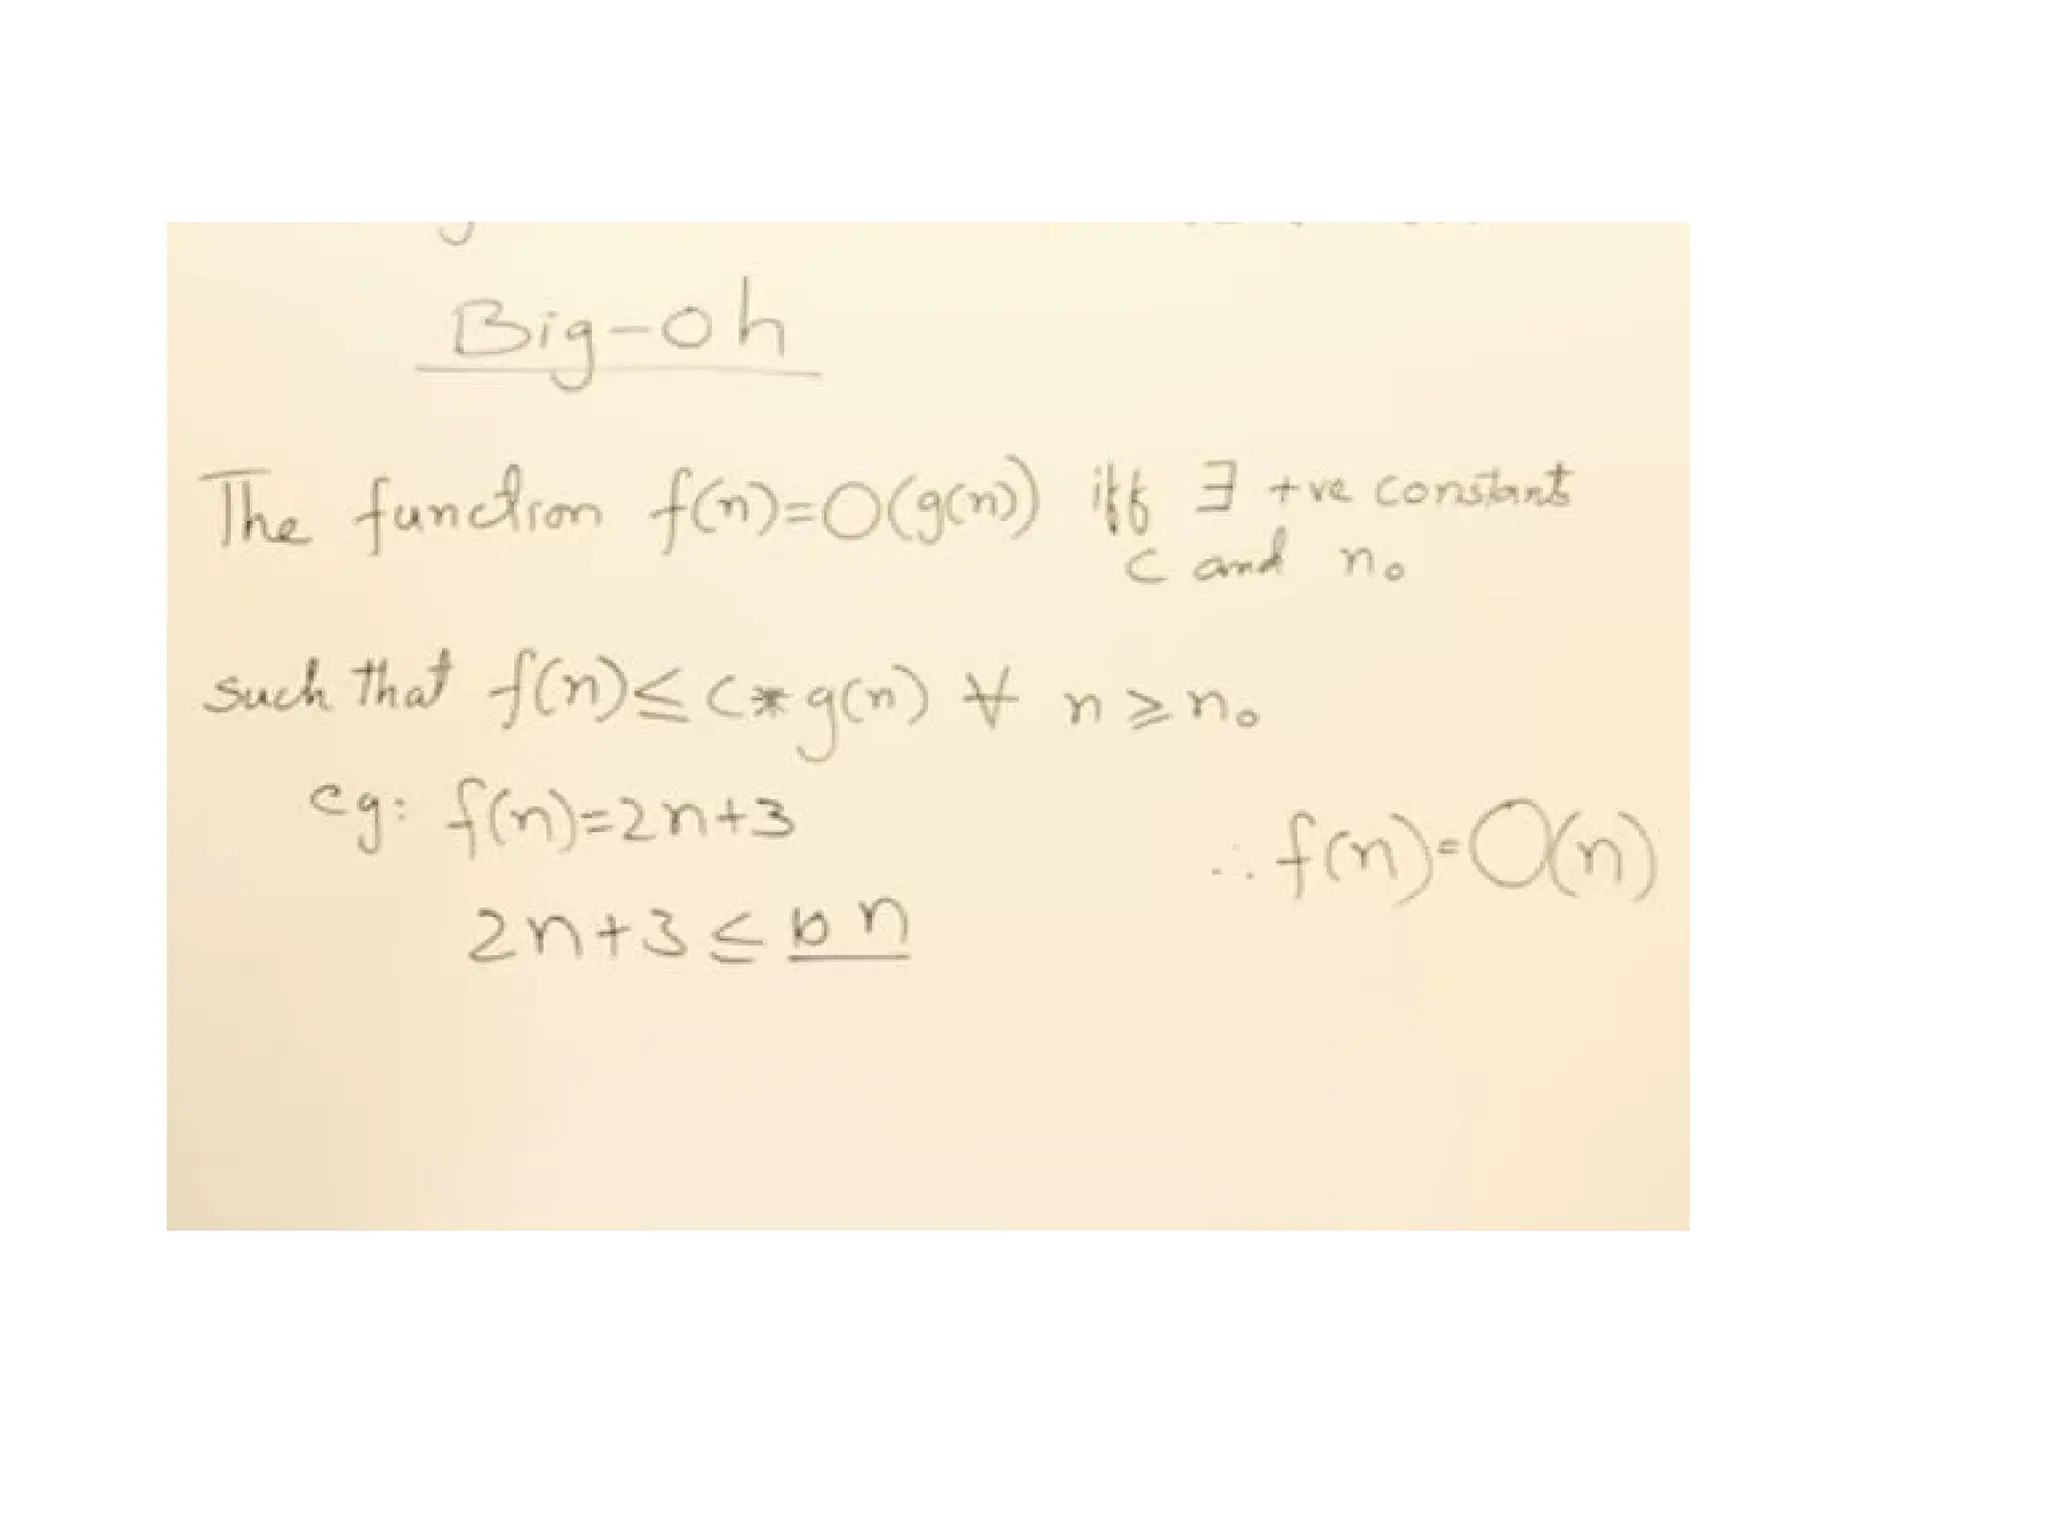 Big-oh
The function f(n)=O(g(n)) iff ∃ +ve constants
c and n₀
such that f(n)≤ c*g(n) ∀ n≥n₀
eg: f(n)=2n+3
∴ f(n)=O(n)
2n+3≤ n